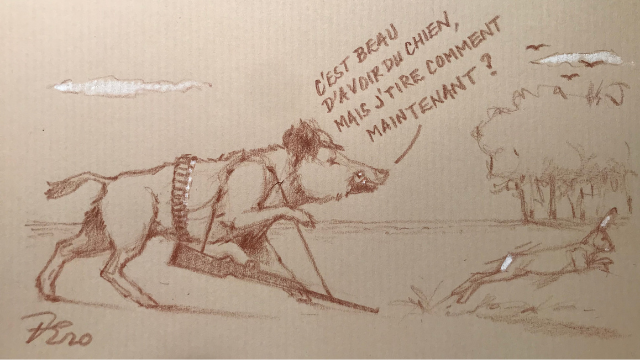 C'EST BEAU
D'AVOIR DU CHIEN,
MAIS J'TIRE COMMENT
MAINTENANT ?